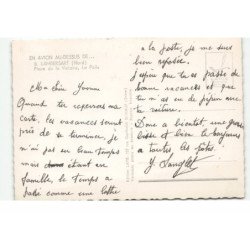 EN AVION AU-DESSUS DE...
LAMBERSART (Nord)
Place de la Victoire, La Poste
Ma chère Yvonne
Quand tu recevras ma
carte, les vacances seront
près de se terminer, je
n'ai pas eu beau temps
mais étant en
famille, le temps a
passé comme une lettre
à la poste, je me suis
bien reposée.
J'espère que tu as passé de
bonnes vacances et que
tu n'as eu de pépin avec
ta voiture.
Donc à bientôt une grosse
bises et bien le bonjour
à toutes les filles.
Y. Langlet